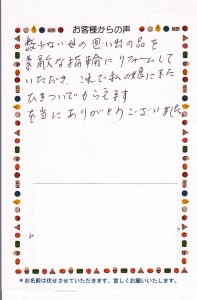 お客様からの声
数少ない母の思い出の品を
素敵な指輪にリフォームして
いただき、これで私の娘にまた
ひきついでもらえます
本当にありがとうございました
＊お名前は伏せさせていただきます。宜しくお願いいたします。